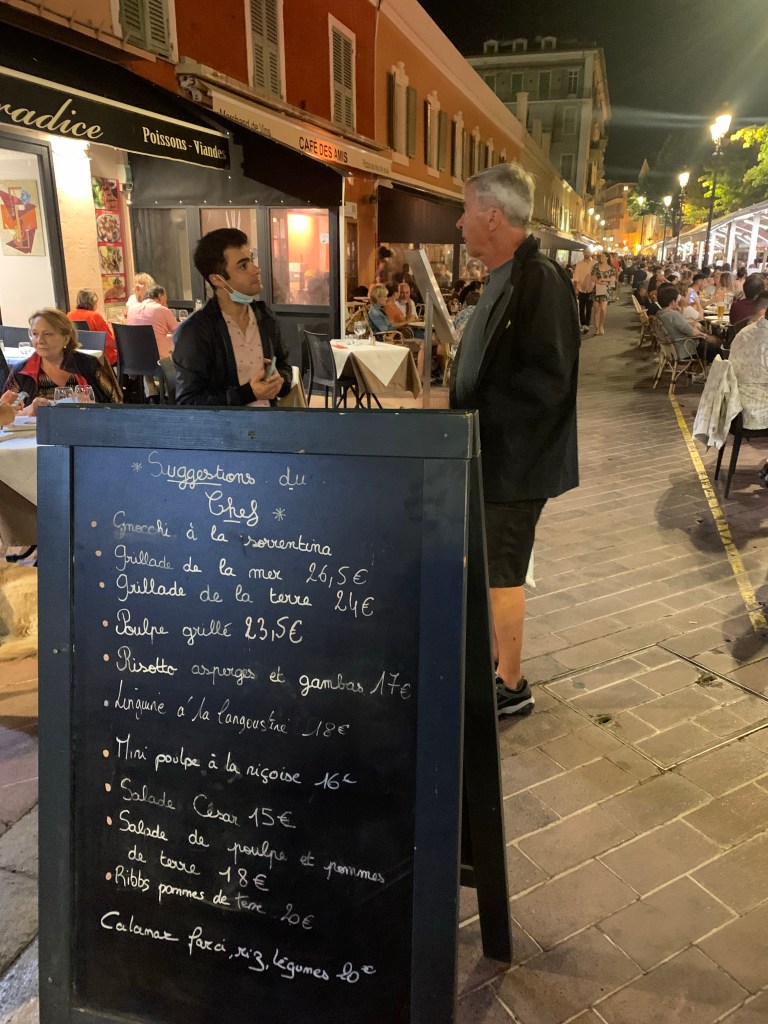 radice
Poissons - Viandes
Marchand de Vins
CAFÉ DES AMIS
* Suggestions du
Chef *
Gnocchi à la sorrentina
Grillade de la mer 26,5€
Grillade de la terre 24€
Poulpe grillé 23,5€
Risotto asperges et gambas 17€
Linguine a la langoustine 18€
Mini poulpe à la niçoise 16€
Salade César 15€
Salade de poulpe et pommes
de terre 18€
Ribbs pommes de terre 20€
Calamar farci, riz, légumes 20€